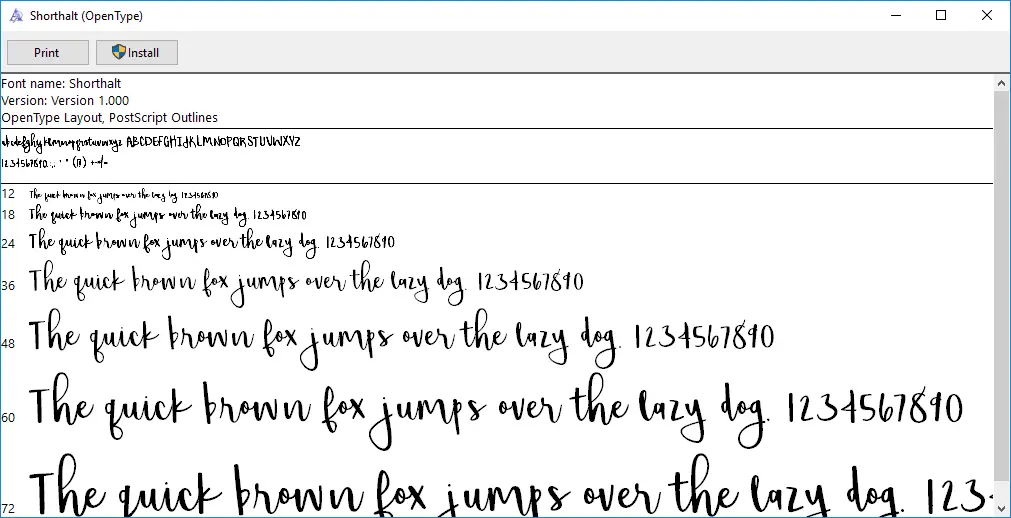 Shorthalt (OpenType)
Print Install
Font name: Shorthalt
Version: Version 1.000
OpenType Layout, PostScript Outlines
abcdefghijklmnopqrstuvwxyz ABCDEFGHIJKLMNOPQRSTUVWXYZ
1234567890
12 The quick brown fox jumps over the lazy dog. 1234567890
18 The quick brown fox jumps over the lazy dog. 1234567890
24 The quick brown fox jumps over the lazy dog. 1234567890
36 The quick brown fox jumps over the lazy dog. 1234567890
48 The quick brown fox jumps over the lazy dog. 1234567890
60 The quick brown fox jumps over the lazy dog. 1234567890
72 The quick brown fox jumps over the lazy dog. 123